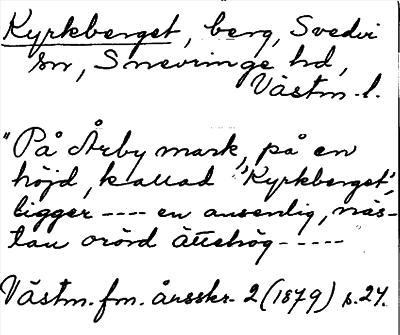 Kyrkberget, berg, Svedvi
sn, Snevringe hd,
Västm. l.
"På Årby mark, på en
höjd, kallad 'Kyrkberget',
ligger ---- en ansenlig, näs-
tan orörd ättehög -----
Västm. fm. årsskr. 2 (1879) s. 24.